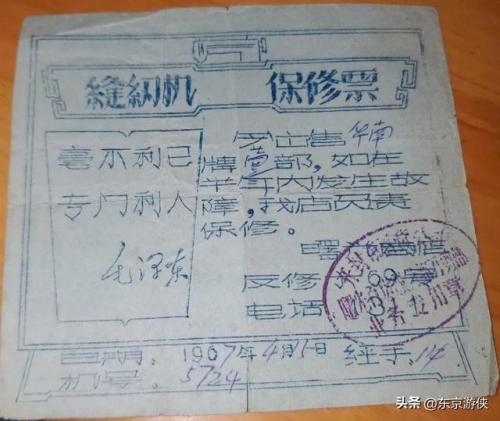 縫紉机 保修票
毫不利己
专门利人
毛泽东
今出售华南
牌壹部，如在
半年内发生故
障，我店负责
保修。
反修
电话
业务专用章
日期：1967年4月15日 经手：14
机号：5724
头条 @东京游侠